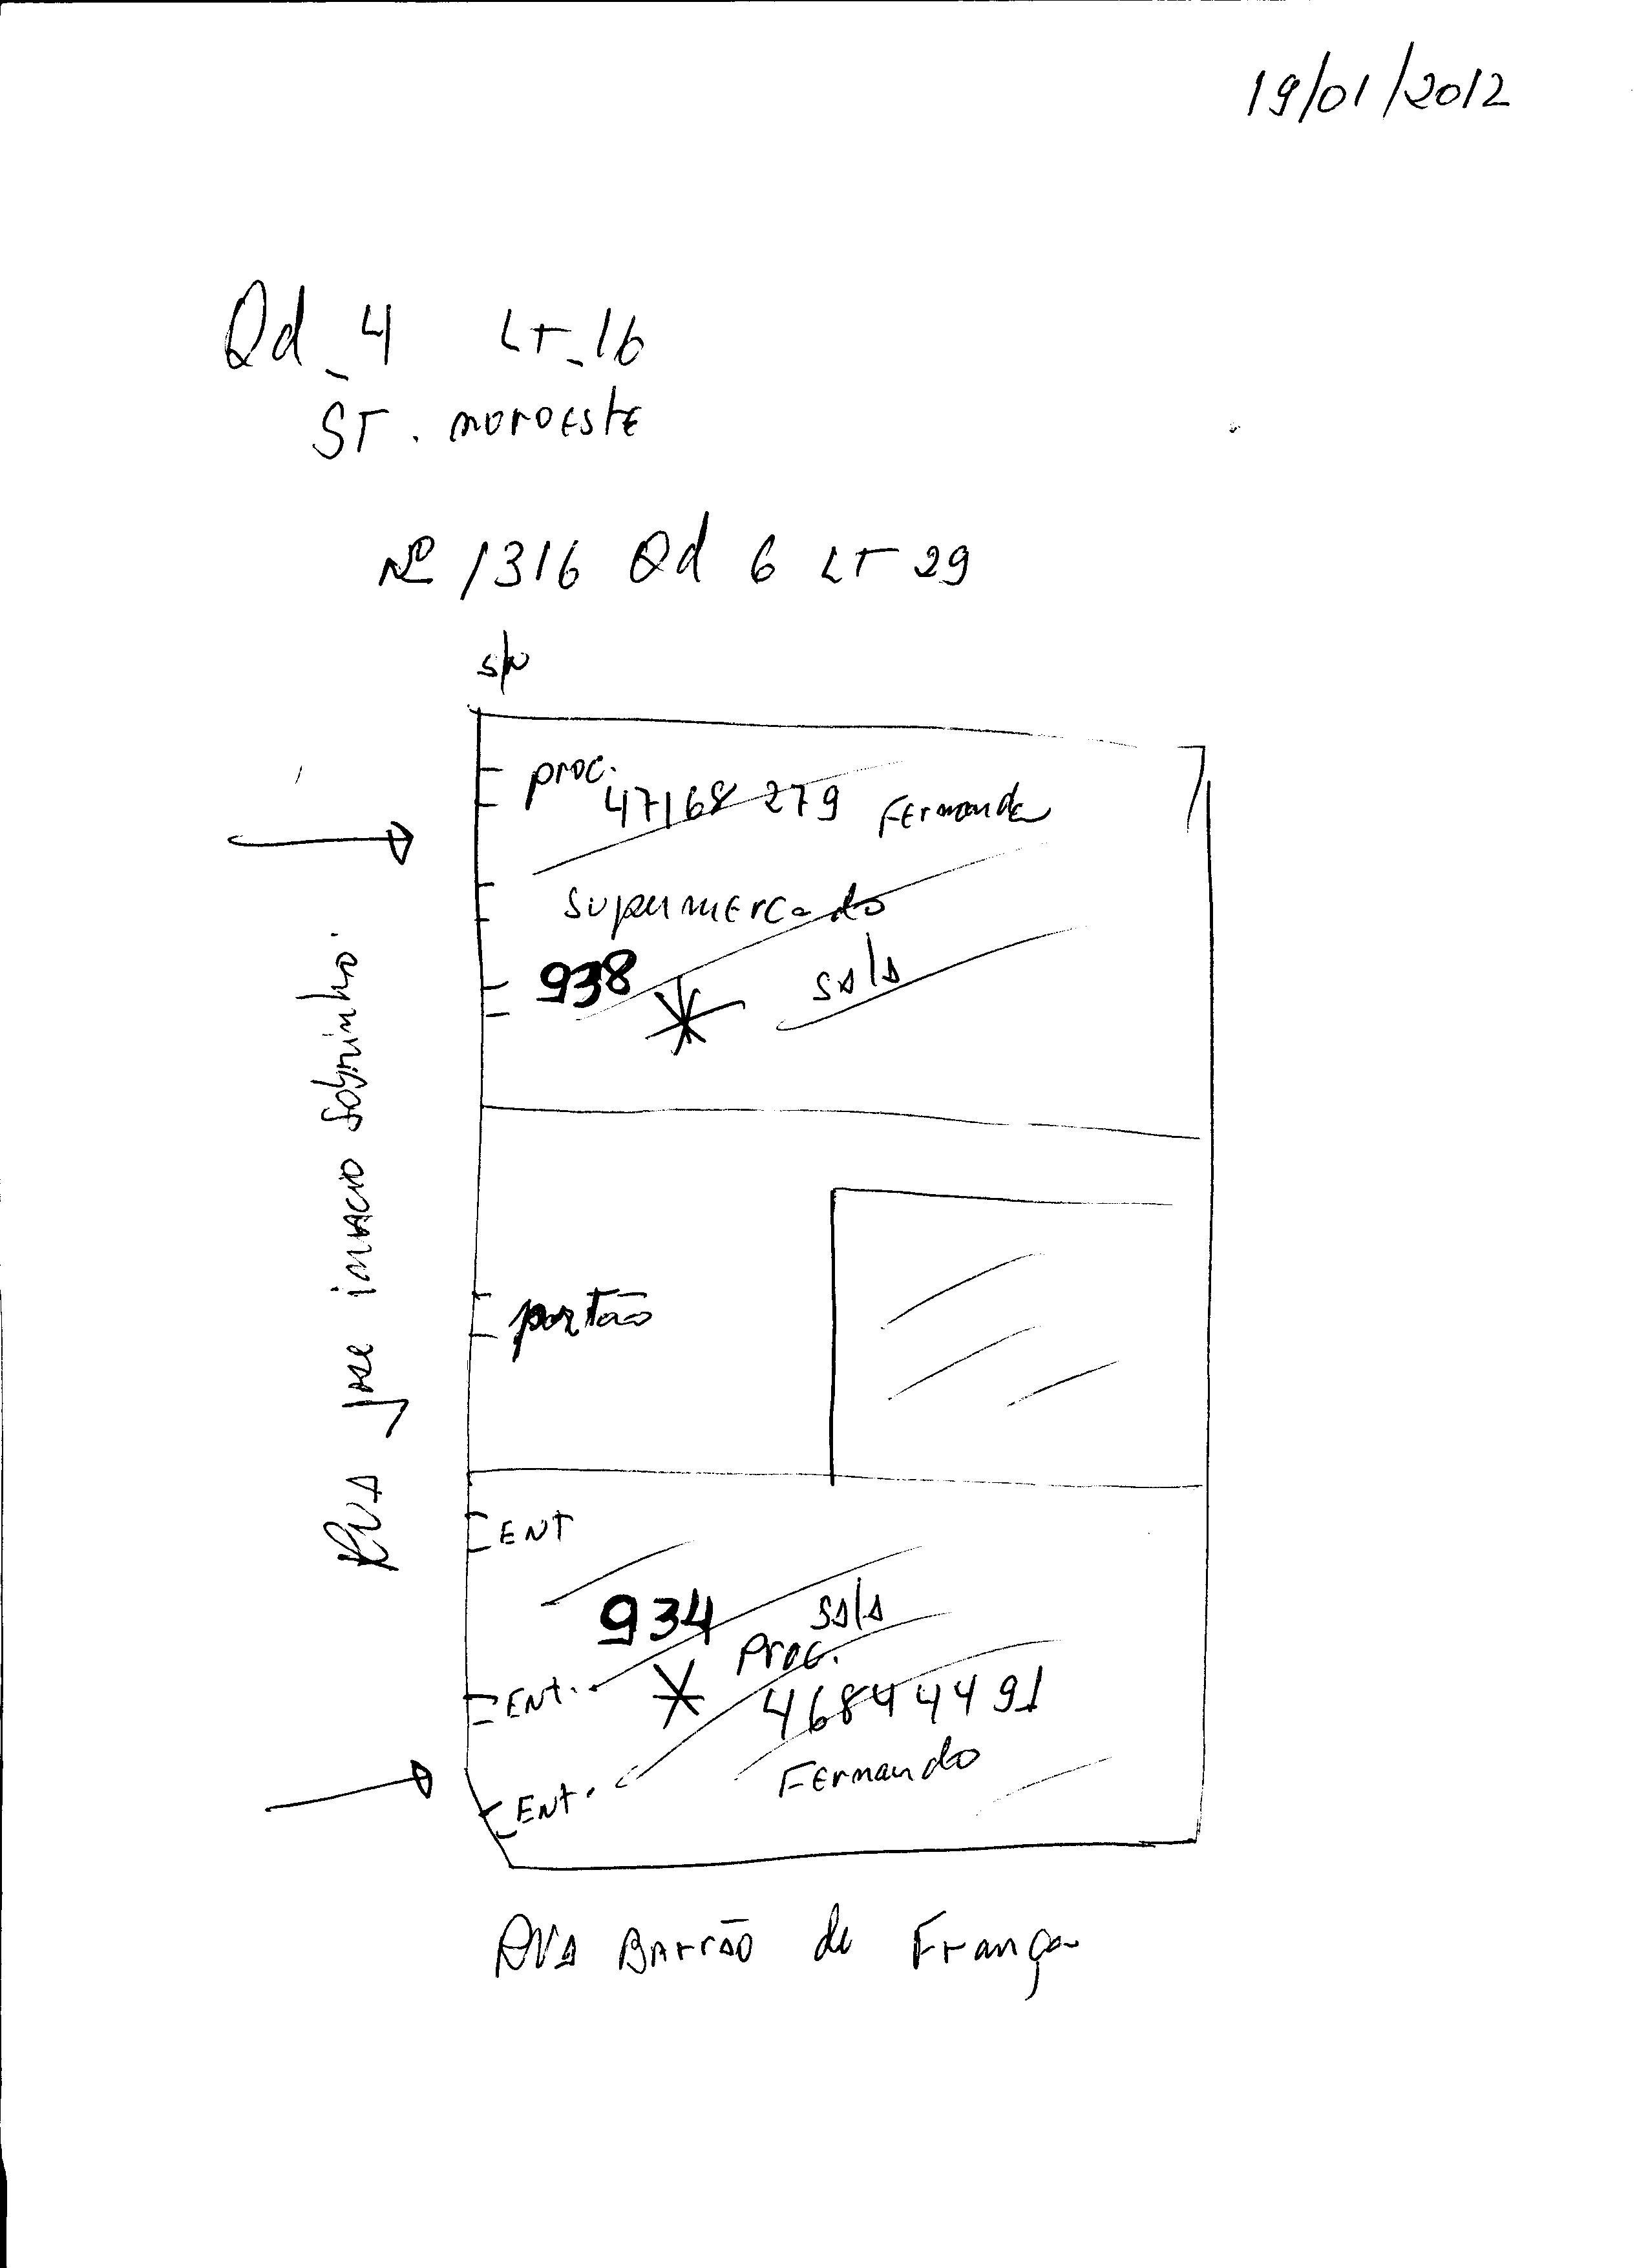 19/01/2012
Qd_4 LT_16
ST. noroEstE
Nº 1316 Qd 6 LT 29
s/n
proc.
47168279 FErnando
supermErcado
938 sala
RUA José inacio Sobrinho.
portão
ENT
934 sala
Proc.
ENt. 46844491
FErnando
ENt.
RUA BArrão de França